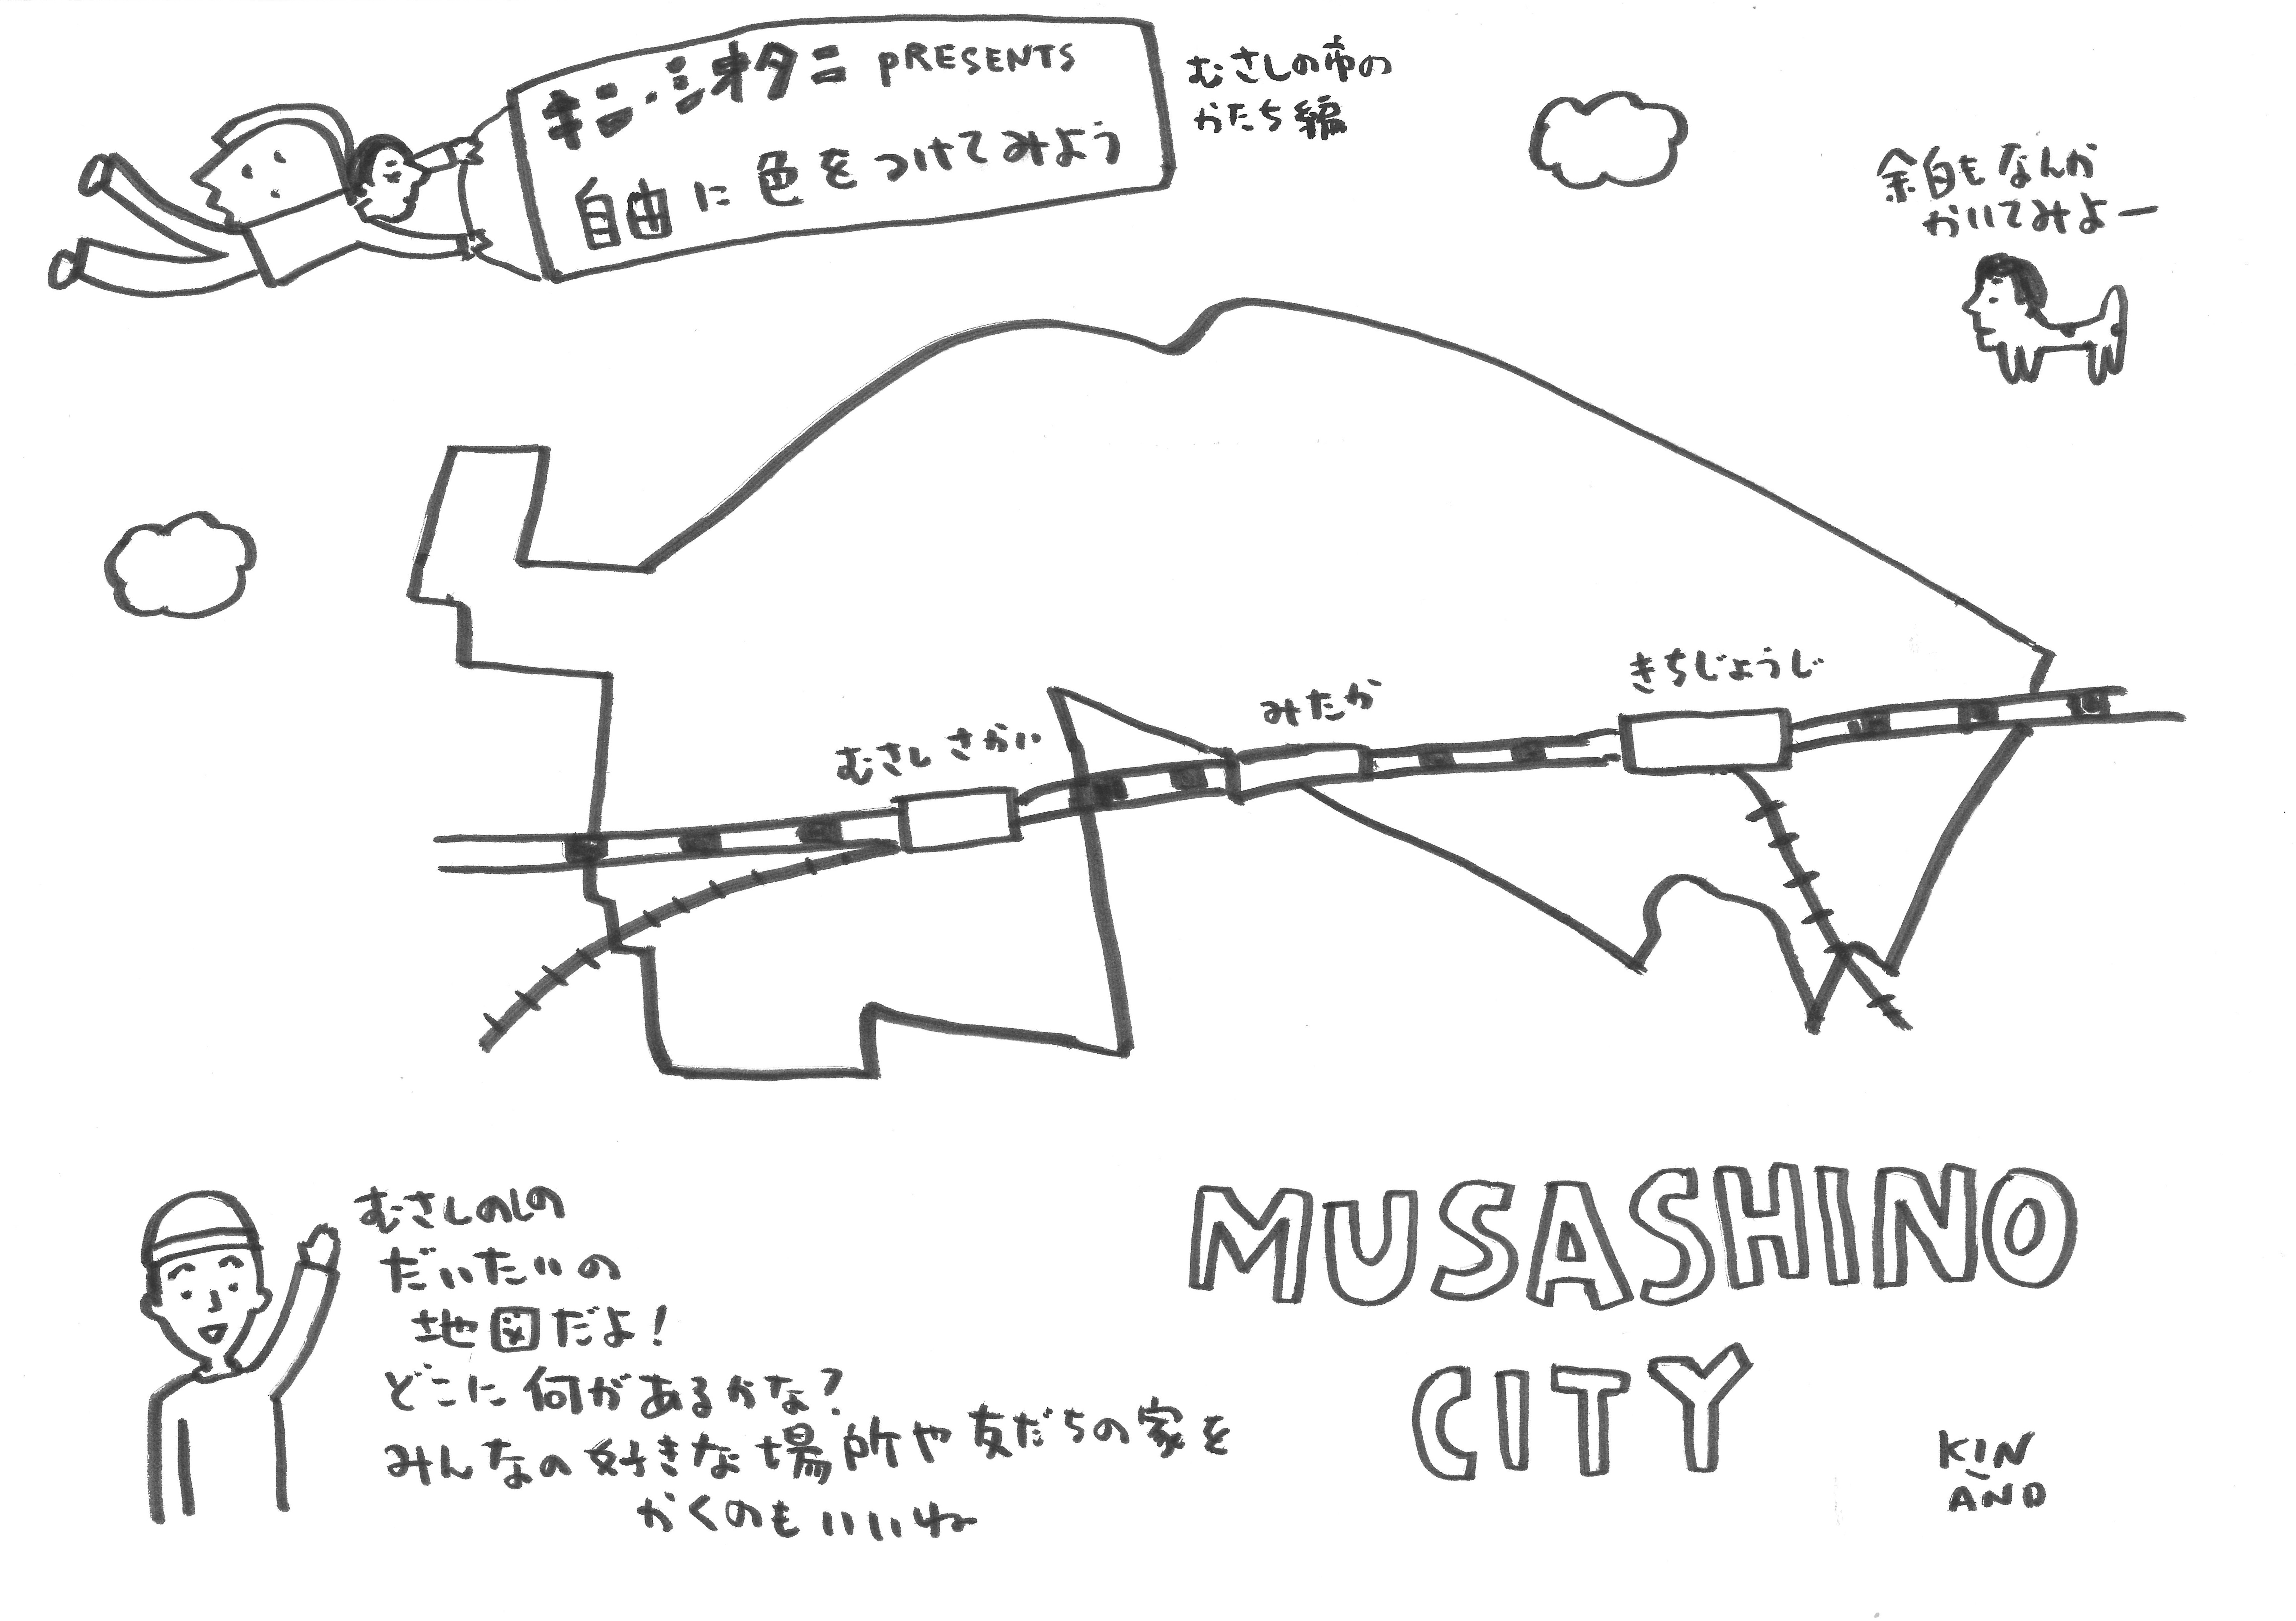 キン・シオタニ PRESENTS
自由に色をつけてみよう
むさしの市の
かたち編
余白もなんか
かいてみよー
きちじょうじ
みたか
むさしさかい
むさしのしの
だいたいの
地図だよ!
どこに何があるかな?
みんなの好きな場所や友だちの家を
かくのもいいね
MUSASHINO
CITY
KIN
AND